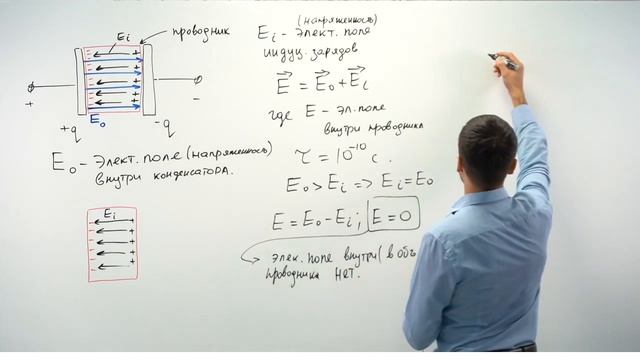 Ei
проводник
E₀
+
-
+q
-q
E₀ - элект. поле (напряженность)
внутри конденсатора.
Ei
(напряженность)
Ei - элект. поле
индуц. зарядов
E = E₀ + Ei
где E - эл. поле
внутри проводника
τ = 10⁻¹⁰ c.
E₀ > Ei => Ei = E₀
E = E₀ - Ei; E = 0
элек. поле внутри (в объ
проводника нет.